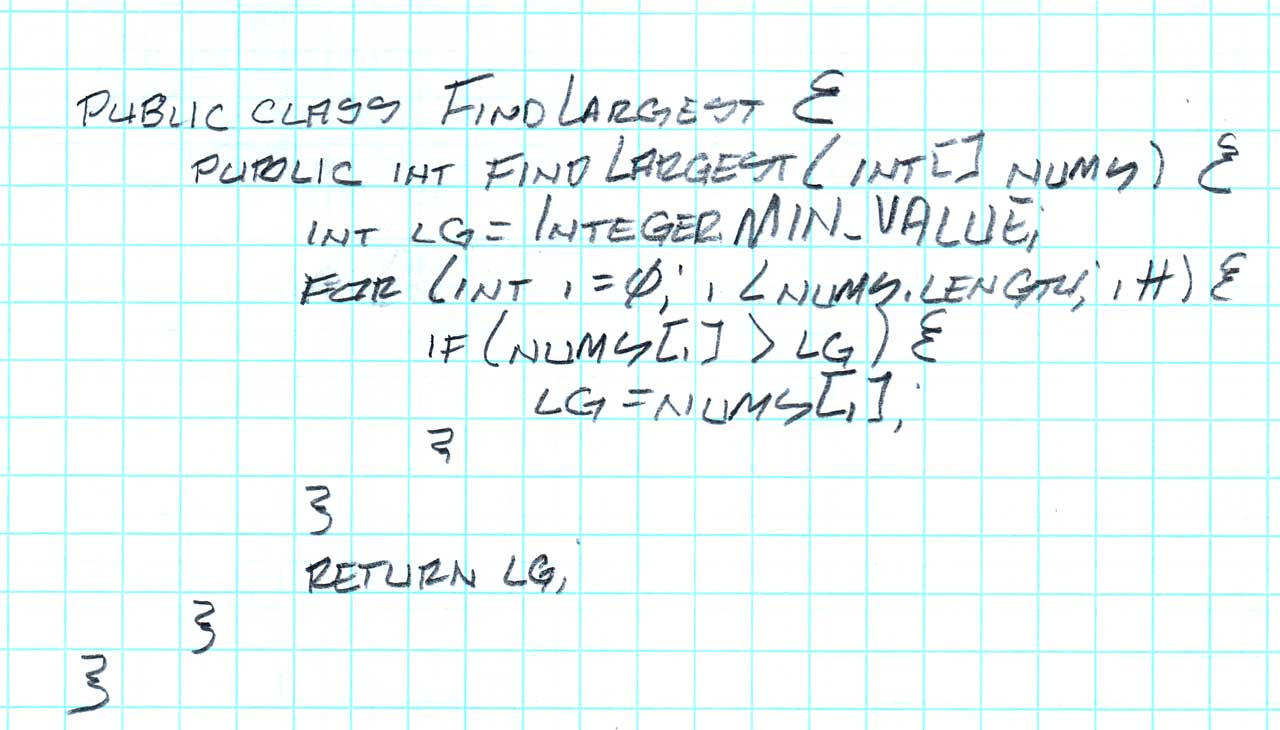 PUBLIC CLASS FINDLARGEST {
PUBLIC INT FINDLARGEST(INT[] NUMS) {
INT LG = INTEGER.MIN_VALUE;
FOR (INT I = 0; I < NUMS.LENGTH; I++) {
IF (NUMS[I] > LG) {
LG = NUMS[I];
}
}
RETURN LG;
}
}